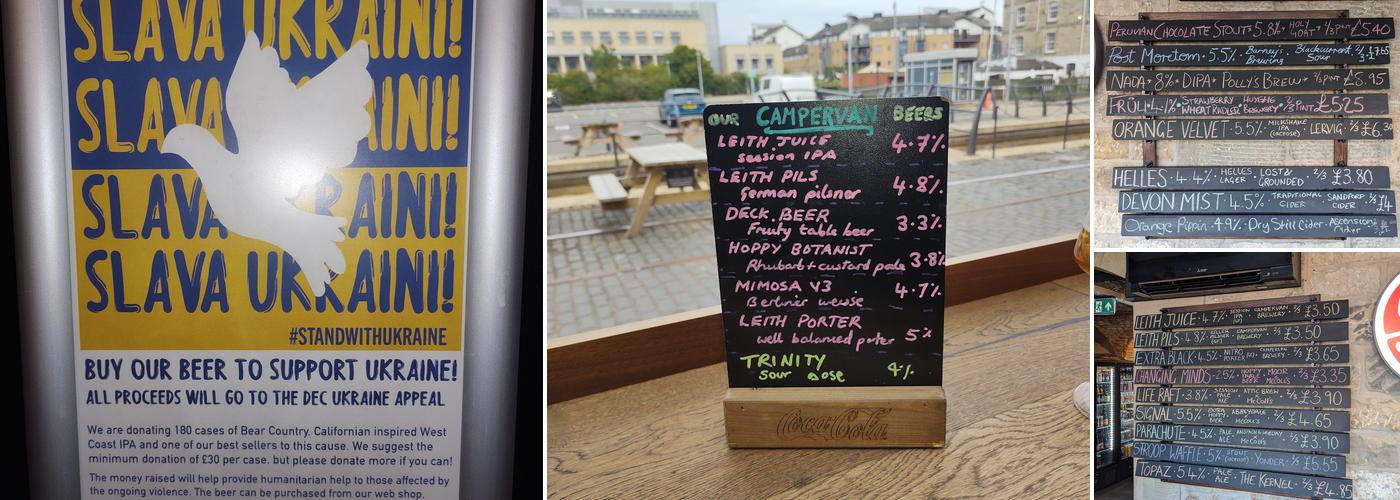 SLAVA UKRAINI!
SLAVA UKRAINI!
SLAVA UKRAINI!
SLAVA UKRAINI!
#STANDWITHUKRAINE
BUY OUR BEER TO SUPPORT UKRAINE!
ALL PROCEEDS WILL GO TO THE DEC UKRAINE APPEAL
We are donating 180 cases of Bear Country, Californian inspired West
Coast IPA and one of our best sellers to this cause. We suggest the
minimum donation of £30 per case, but please donate more if you can!
The money raised will help provide humanitarian help to those affected by
the ongoing violence. The beer can be purchased from our web shop,
OUR CAMPERVAN BEERS
LEITH JUICE 4.7%
session IPA
LEITH PILS 4.8%
German pilsner
DECK BEER 3.3%
Fruity table beer
HOPPY BOTANIST
Rhubarb + custard pale 3.8%
MIMOSA V3 4.7%
Berliner weisse
LEITH PORTER
well balanced porter 5%
TRINITY
Sour Gose 4%
Coca-Cola
PERUVIAN CHOCOLATE STOUT 5.8% HOLY GOAT 1/3 PINT £5.40
Post Moretom 5.5% Barney's Brewing Blackcurrant Sour
NADA 8% DIPA POLLY'S BREW 1/3 PINT £5.95
FRÜLI 4.1% STRAWBERRY WHEAT RADLER HUYGHE BREWERY 2/3 PINT £5.25
ORANGE VELVET 5.5% MILKSHAKE IPA (lactose) LERVIG 2/3
HELLES 4.4% HELLES LAGER LOST & GROUNDED 2/3 £3.80
DEVON MIST 4.5% TRADITIONAL CIDER SANDFORD CIDER £4
Orange Pippin 4.9% Dry Still Cider Ascension
LEITH JUICE 4.7% SESSION IPA CAMPERVAN BREWERY 2/3 £3.50
LEITH PILS 4.8% KELLER PILSNER CAMPERVAN BREWERY 2/3 £3.50
EXTRA BLACK 4.5% NITRO PORTER CAMPERVAN BREWERY 2/3 £3.65
CHANGING MINDS 2.5% HOPPY TABLE BEER MOOR McColl's 2/3 £3.35
LIFE RAFT 3.8% SESSION PALE ALE ATTIC BREW McColl's 2/3 £3.90
SIGNAL 5.5% EXTRA HOPPY BEER ABBEYDALE McColl's 2/3 £4.65
PARACHUTE 4.5% PALE ALE McColl's 2/3 £3.90
STROOP WAFFLE 5% STOUT (lactose) YONDER 2/3 £5.55
TOPAZ 5.4% PALE ALE THE KERNEL 2/3 £4.85